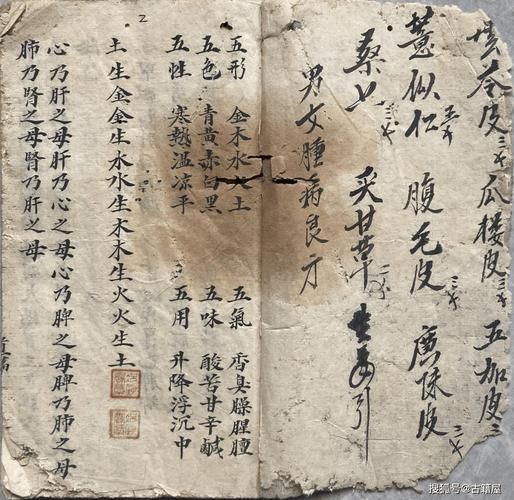 苓皮 瓜楼皮 五加皮
薏似仁 腹毛皮 廣陳皮
桑 炙甘草 引
男女腫病良方
五形 金木水火土 五氣 香臭臊腥膻
五色 青黃赤白黑 五味 酸苦甘辛鹹
五性 寒熱溫凉平 五用 升降浮沉中
土生金金生水水生木木生火火生土
心乃肝之母肝乃心之母心乃脾之母脾乃肺之母
肺乃腎之母腎乃肝之母
2
搜狐号@古籍屋